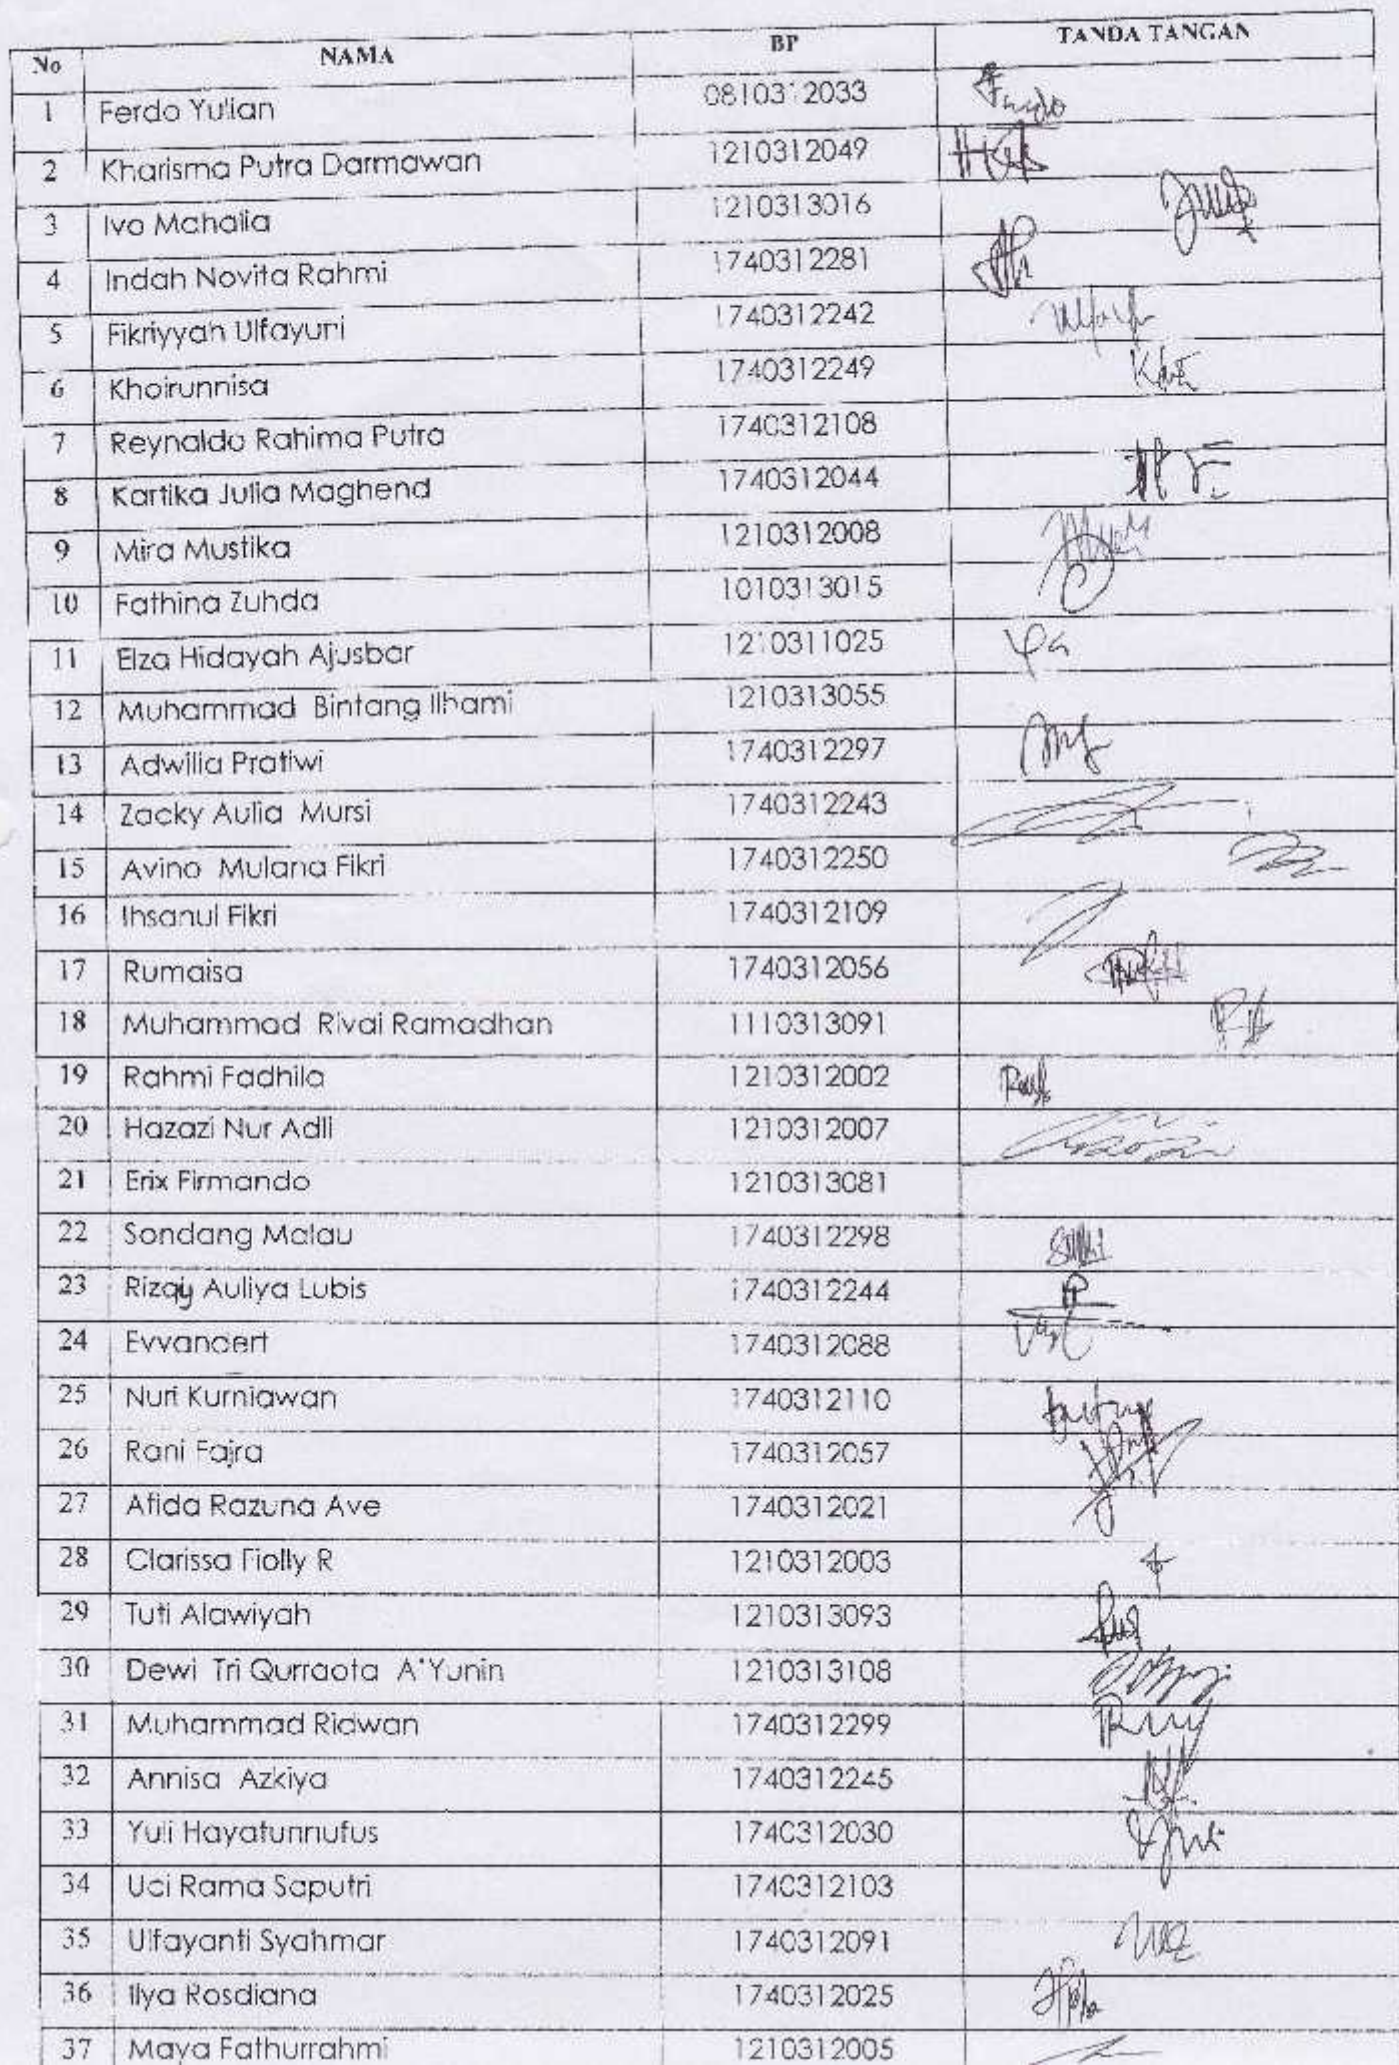 No NAMA BP TANDA TANGAN
1 Ferdo Yulian 0810312033 Ferdo
2 Kharisma Putra Darmawan 1210312049
3 Ivo Mahalia 1210313016
4 Indah Novita Rahmi 1740312281
5 Fikriyyah Ulfayuri 1740312242
6 Khoirunnisa 1740312249
7 Reynaldo Rahima Putra 1740312108
8 Kartika Julia Maghend 1740312044
9 Mira Mustika 1210312008
10 Fathina Zuhda 1010313015
11 Elza Hidayah Ajusbar 1210311025
12 Muhammad Bintang Ilhami 1210313055
13 Adwilia Pratiwi 1740312297
14 Zacky Aulia Mursi 1740312243
15 Avino Mulana Fikri 1740312250
16 Ihsanul Fikri 1740312109
17 Rumaisa 1740312056
18 Muhammad Rivai Ramadhan 1110313091
19 Rahmi Fadhila 1210312002
20 Hazazi Nur Adli 1210312007
21 Erix Firmando 1210313081
22 Sondang Malau 1740312298
23 Rizqy Auliya Lubis 1740312244
24 Evvancert 1740312088
25 Nuri Kurniawan 1740312110
26 Rani Fajra 1740312057
27 Afida Razuna Ave 1740312021
28 Clarissa Fiolly R 1210312003
29 Tuti Alawiyah 1210313093
30 Dewi Tri Qurraota A'Yunin 1210313108
31 Muhammad Ridwan 1740312299
32 Annisa Azkiya 1740312245
33 Yuli Hayatunnufus 1740312030
34 Uci Rama Saputri 1740312103
35 Ulfayanti Syahmar 1740312091
36 Ilya Rosdiana 1740312025
37 Maya Fathurrahmi 1210312005